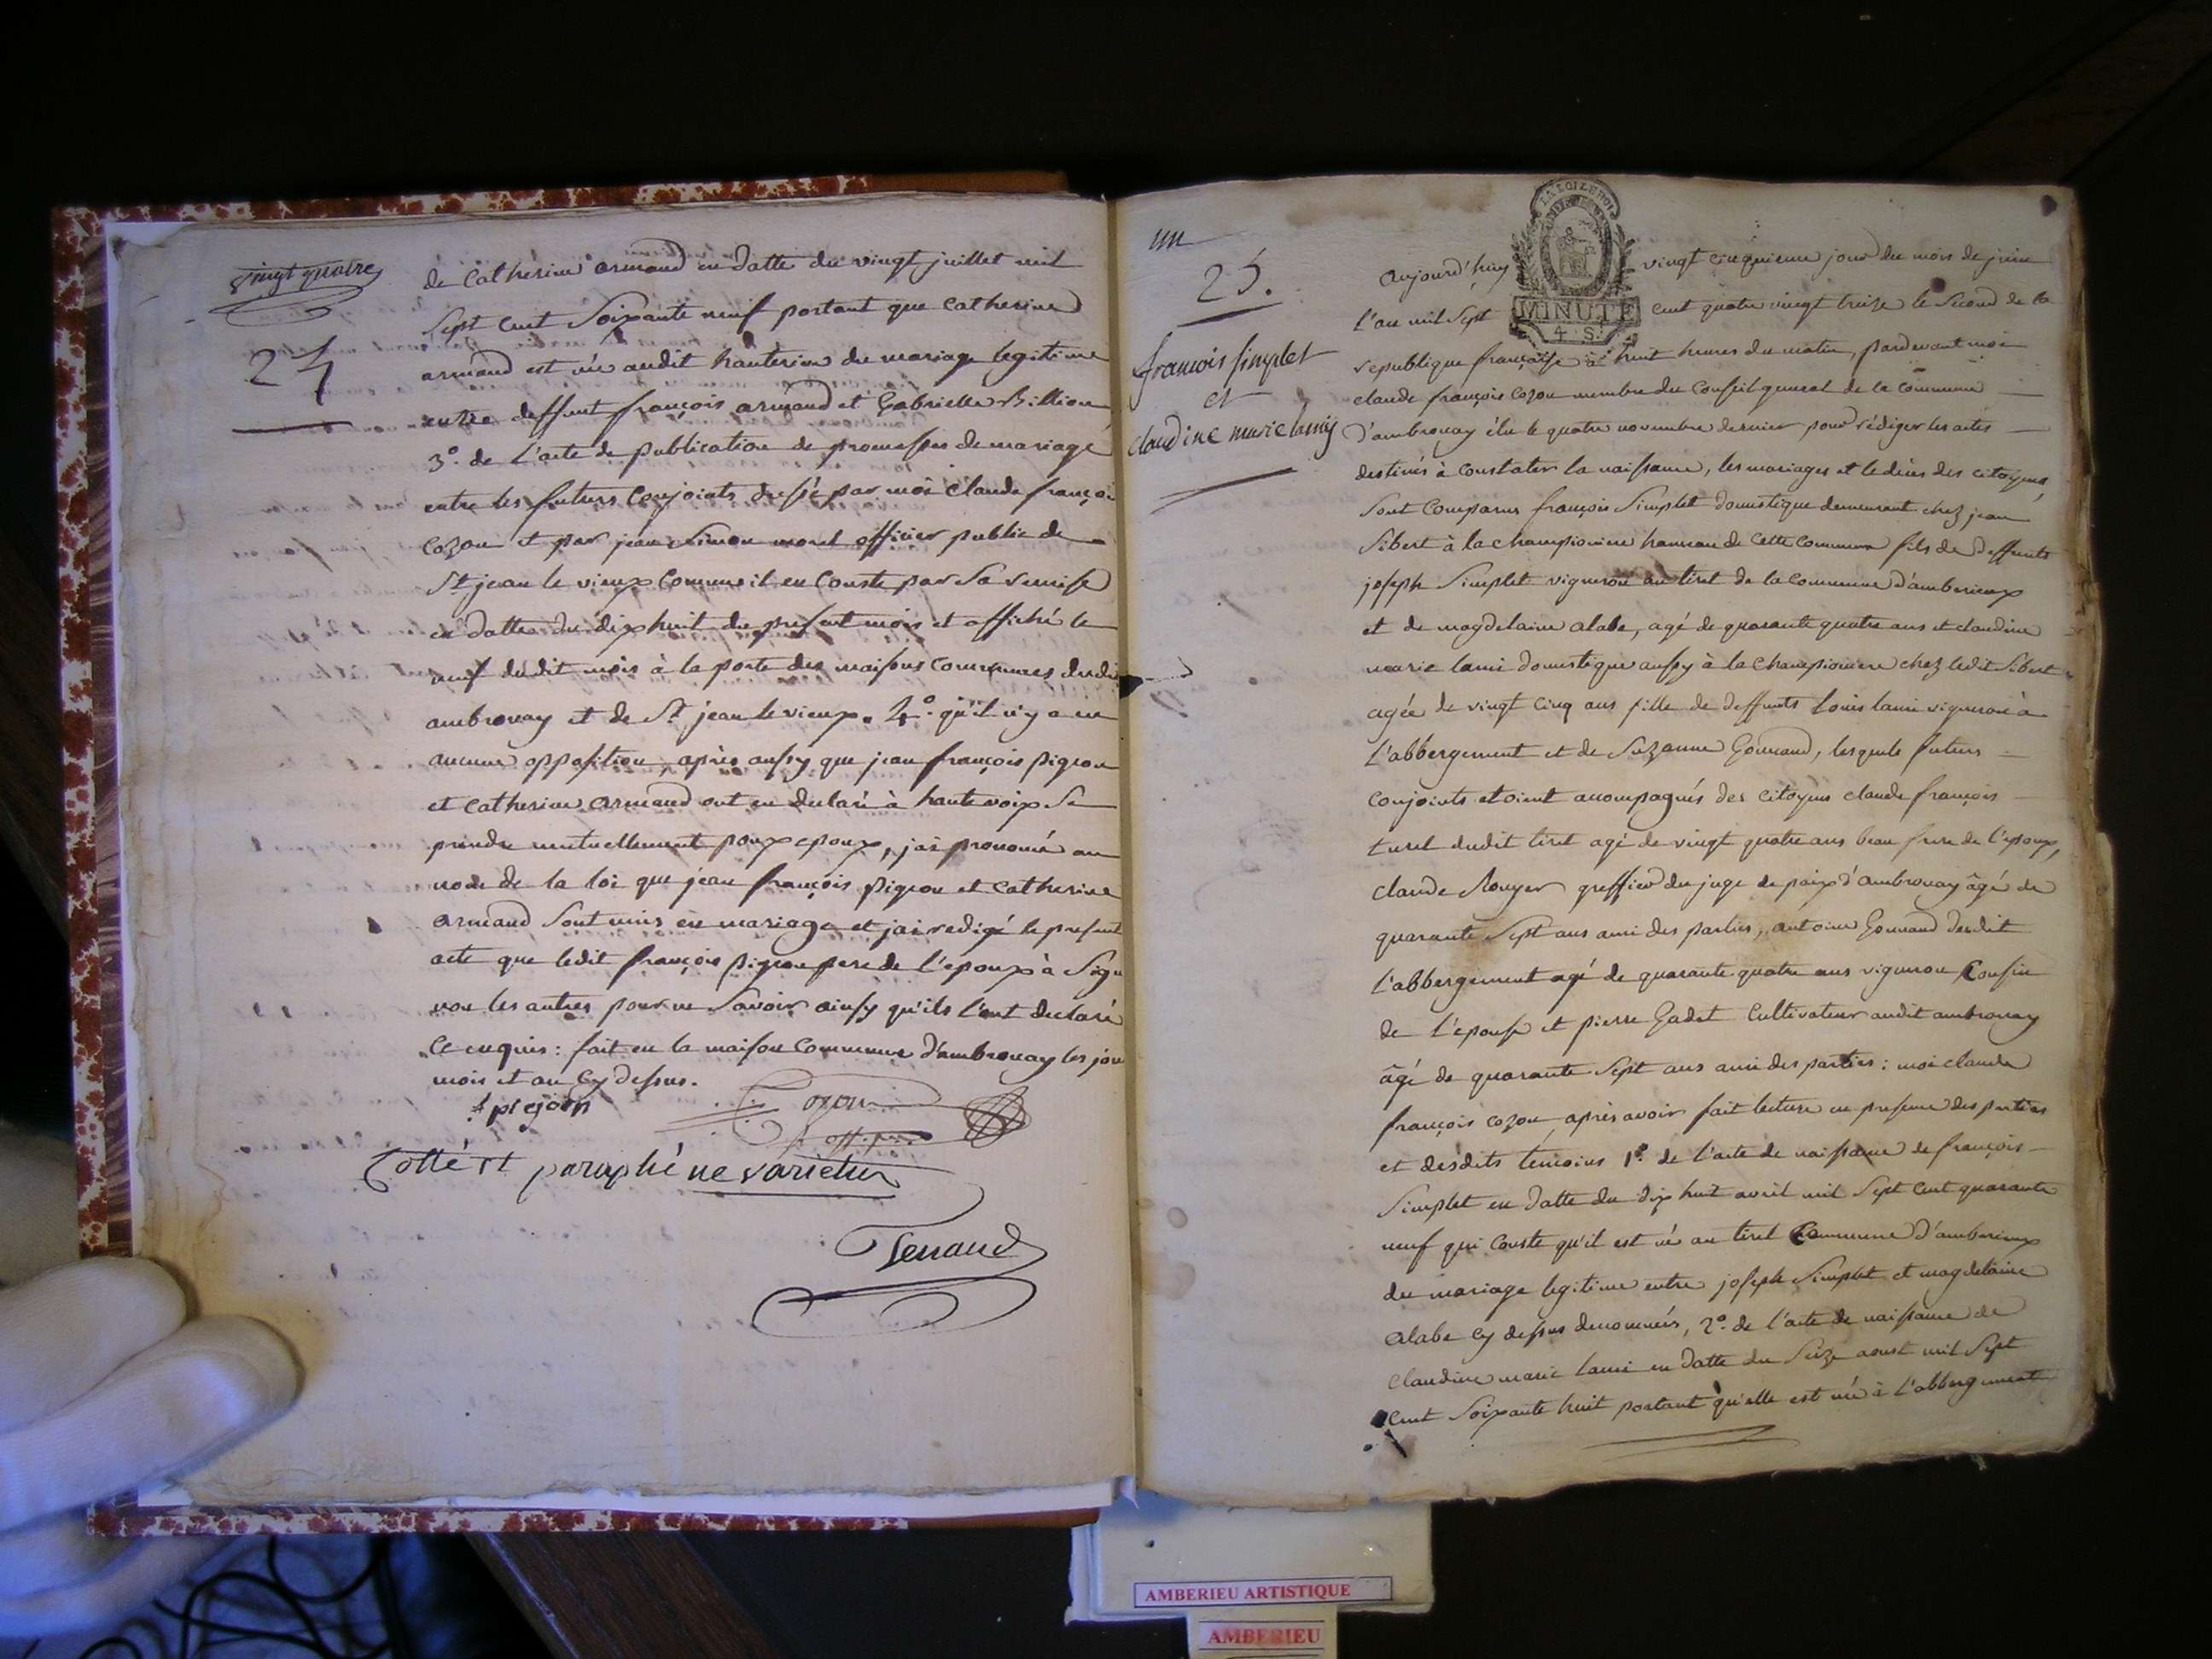 vingt quatre
24
de Catherine armand en datte du vingt juillet mil
Sept Cent Soixante neuf portant que Catherine
armand est née audit hauterive du mariage legitime
entre deffunt françois armand et Gabrielle Billion
3º. de L'acte de publication de promesses de mariage
entre les futurs Conjoints dressé par moi Claude françoi
Cozon et par jean Simon morel officier public de
St jean le vieux Comme il en Conste par Sa remise
en datte du dix huit du present mois et affiché le
neuf dudit mois à la porte des maisons Communes dudi
ambronay et de St jean le vieux. 4º. qu'il n'y a eu
aucune opposition, après aussy que jean françois pigeon
et Catherine armand ont eu declaré à haute voix Se
prendre mutuellement pour epoux, j'ai prononcé au
nom de la loi que jean françois pigeon et Catherine
armand Sont unis en mariage et j'ai redigé le present
acte que ledit françois pigeon pere de l'epoux à Signé
non les autres pour ne Savoir ainsy qu'ils l'ont declaré
Ce enquis : fait en la maison Commune d'ambronay les jou
mois et an Cy dessus.
f pigeon
Cozon
off. pu.
Cotté et paraphé ne varietur
un
25.
françois simplet
et
claudine marie lamy
LA LOI LE ROI
MINUTE
4. S.
aujourd'huy vingt cinquieme jour du mois de juin
l'an mil Sept Cent quatre vingt treize le Second de la
republique française à huit heures du matin, pardevant moi
claude françois Cozon membre du Conseil general de la Commune
d'ambronay élu le quatre novembre dernier pour rédiger les actes
destinés à Constater la naissance, les mariages et le décès des citoyens,
Sont Comparus françois Simplet domestique demeurant chez jean
Sibert à la Championiere hameau de Cette Commune fils de deffunts
joseph Simplet vigneron au tiret de la Commune d'amberieux
et de magdelaine alabe, agé de quarante quatre ans et claudine
marie lami domestique aussy à la Championiere chez ledit Sibert
agée de vingt Cinq ans fille de deffunts Louis lami vigneron à
L'abbergement et de Suzanne Gonrand, lesquels futurs
Conjoints etoient accompagnés des Citoyens claude françois
turel dudit tiret agé de vingt quatre ans beau frere de l'epoux,
Claude Rouyer greffier du juge de paix d'ambronay âgé de
quarante Sept ans ami des parties, antoine Gonrand dudit
L'abbergement agé de quarante quatre ans vigneron Cousin
de l'epouse et pierre Gadet Cultivateur audit ambronay
âgé de quarante Sept ans ami des parties : moi claude
françois Cozon après avoir fait lecture en presence des parties
et desdits temoins 1º. de l'acte de naissance de françois
Simplet en datte du dix huit avril mil Sept Cent quarante
neuf qui Conste qu'il est né au tiret Commune d'amberieux
du mariage legitime entre joseph Simplet et magdelaine
alabe Cy dessus denommés, 2º. de l'acte de naissance de
Claudine marie lami en datte du Seize aoust mil Sept
Cent Soixante huit portant qu'elle est née à L'abbergement
AMBERIEU ARTISTIQUE
AMBERIEU